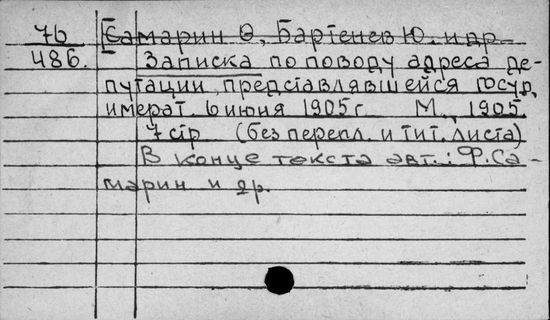 76 [Самарин Ѳ, Бартенев Ю. и др
486. Записка по поводу адреса де-
путации, представлявшейся госуд.
императ. 6 июня 1905 г. М., 1905.
7 стр (без перепл. и тит. листа)
В конце текста авт.: Ф. Са-
марин и др.